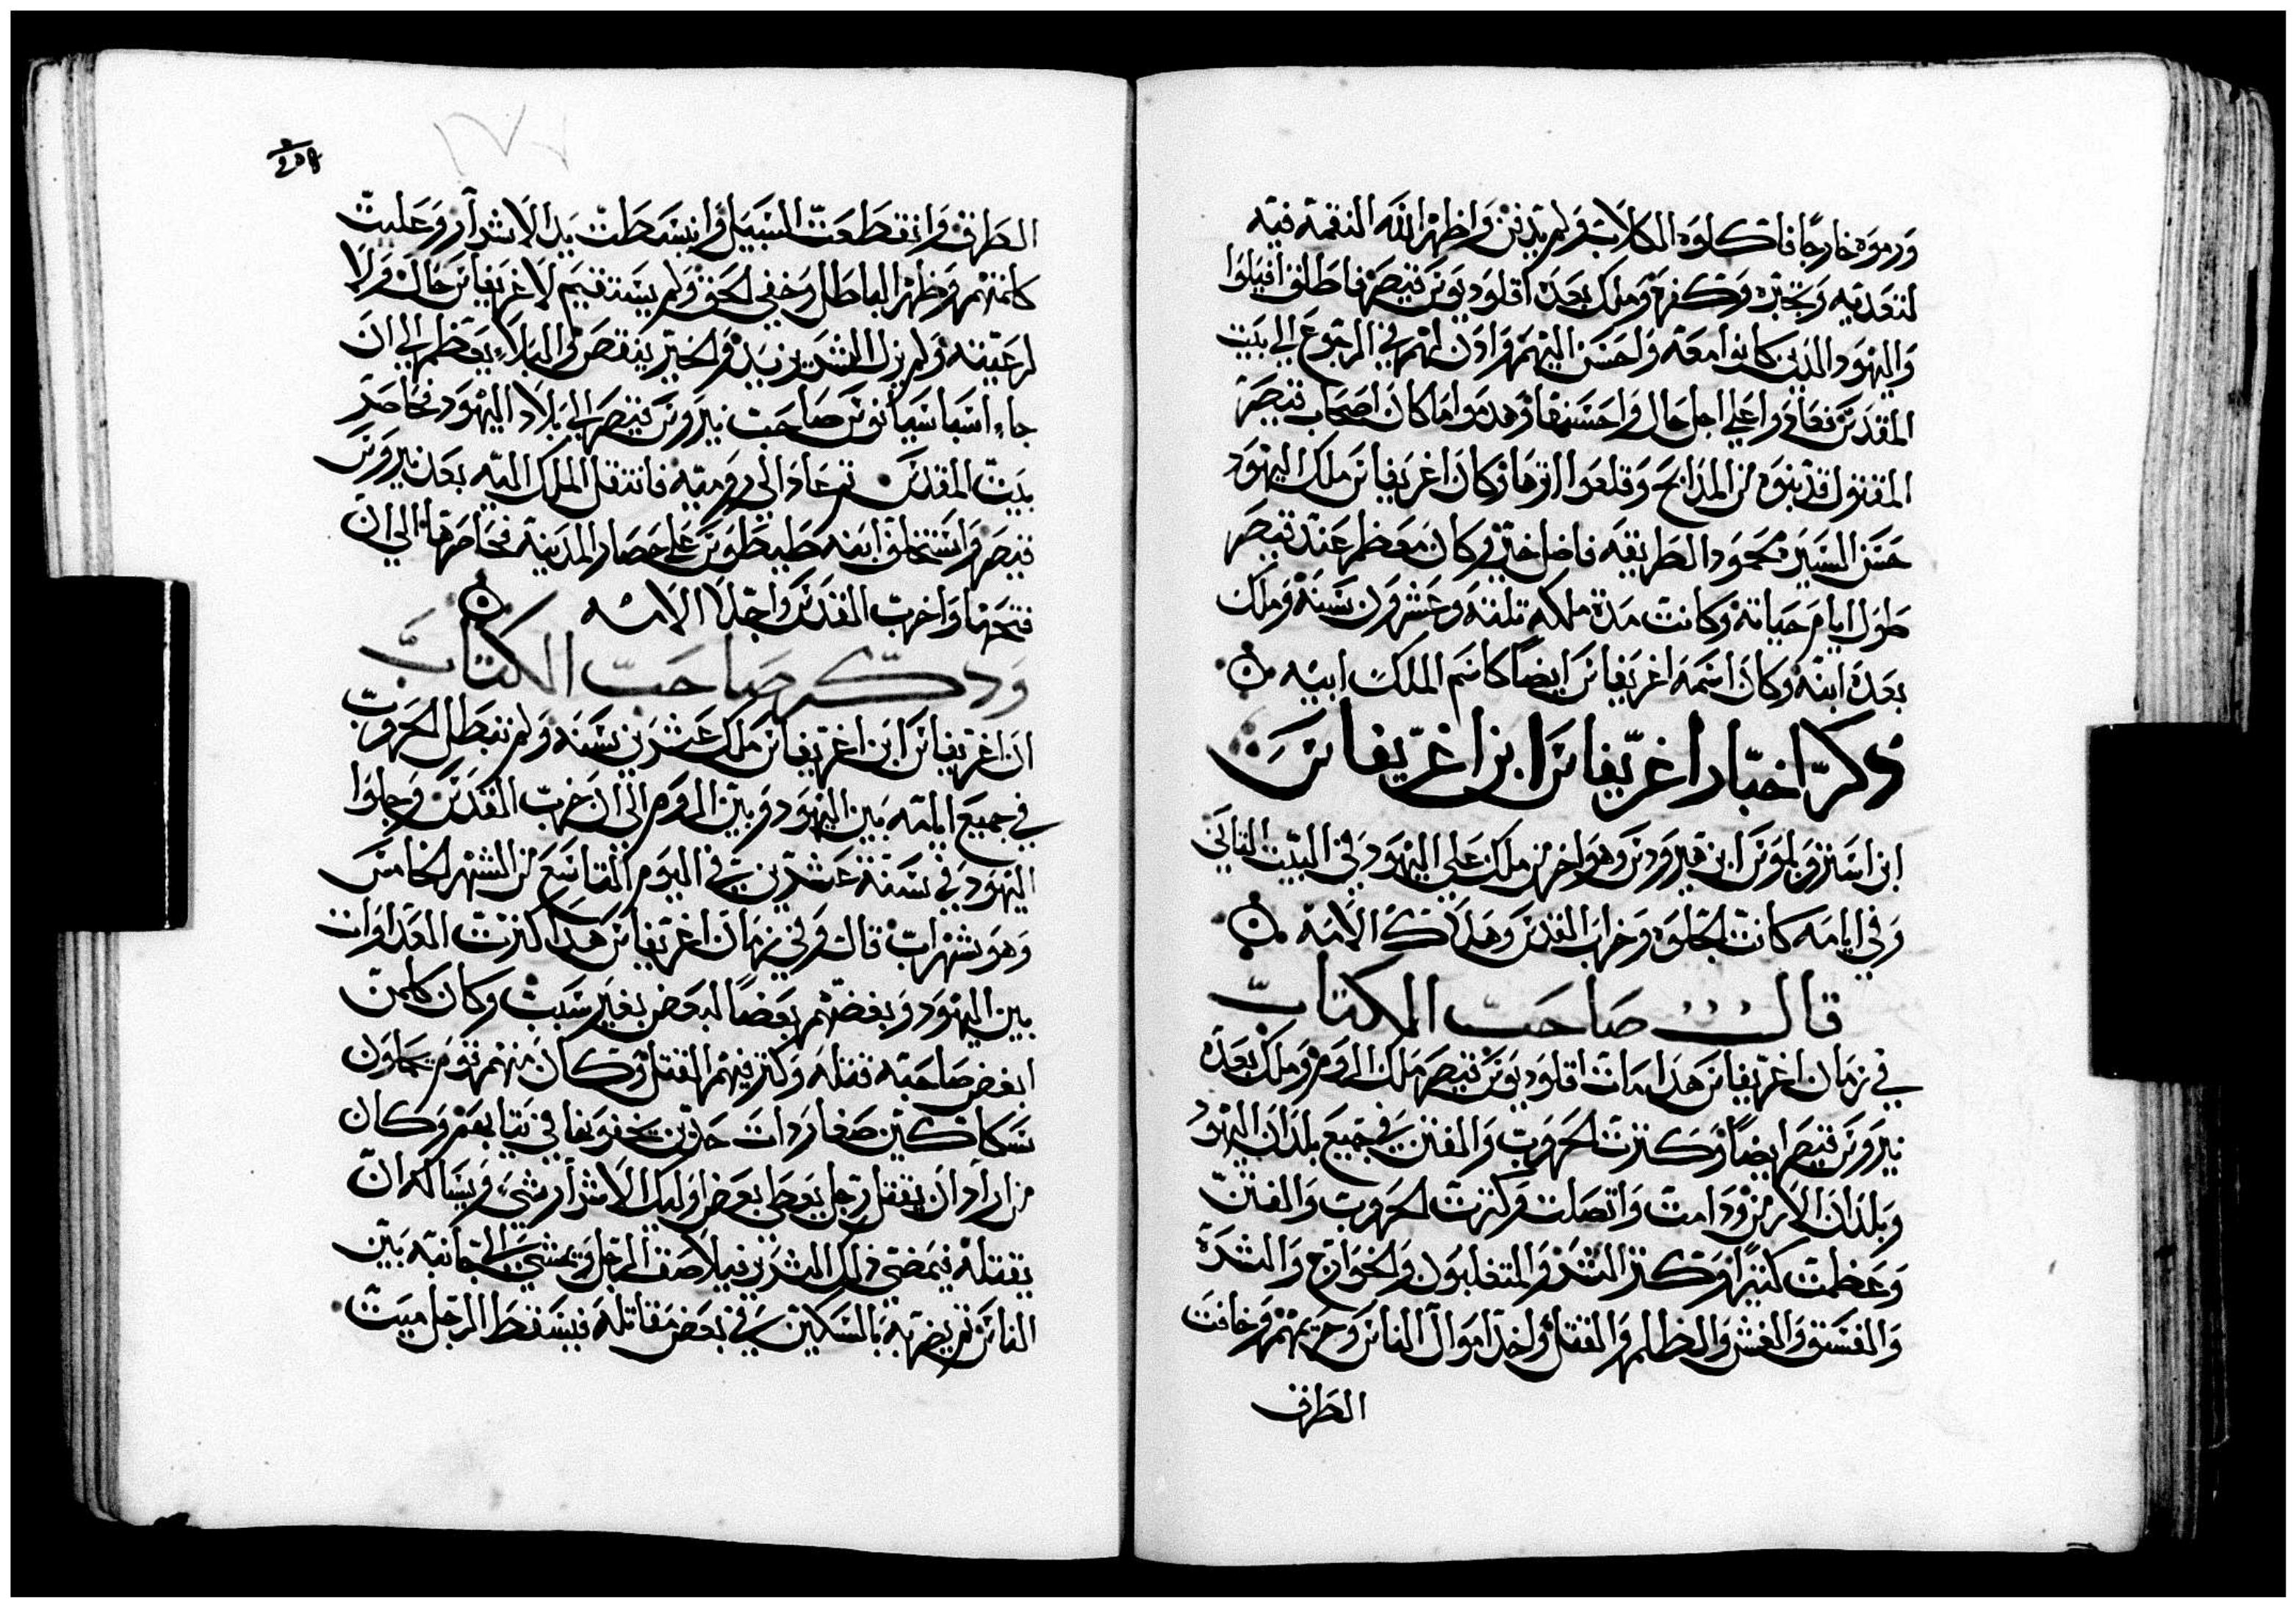 ورموه خارجًا فاكلوه الكلاب ولم يدفن واظهر الله النقمة فيه
لتعديه وتجبره وكفره وملك بعده اقلوديوس قيصر فاطلق افيلوا
واليهود الذين كانوا معه واحسن اليهم واذن لهم في الرجوع الي بيت
المقدس فعادوا علي اجل حال واحسنها وهدموا ما كان اصحاب قيصر
المقتول قد بنوه من المذابح وقلعوا اثرها وكان اغريفاس ملك اليهود
حسن السير محمود الطريقه فاضل خير وكان معظم عند قيصر
طول ايام حياته وكانت مدة ملكه ثلثه وعشرون سنة وملك
بعده ابنه وكان اسمه اغريفاس ايضًا كاسم الملك ابيه
ذكر اخبار اغريفاس ابن اغريفاس
ابن استروبلوس ابن هيرودس وهو اخر من ملك علي اليهود في البيت الثاني
وفي ايامه كانت الجلوه وخراب القدس وهلاك الامة
قال صاحب الكتاب
في زمان اغريفاس هذا مات اقلوديوس قيصر ملك الروم وملك بعده
نيرونس قيصر ايضًا وكثرت الحروب والفتن في جميع بلدان اليهود
وبلدان الارمن ودامت واتصلت وكثرت الحروب والفتن
وعظمت كثيرًا وكثر الشر والمتغلبون والخوارج والشره
والفسق والغش والظلم والقتل واخذ اموال الناس وحريمهم وخافت
الطرق
الطرق وانقطعت السبيل وانبسطت يد الاشرار وعليت
كلمتهم وظهر الباطل وخفي الحق ولم يستقيم لاغريفاس حال ولا
لرعيته ولم يزل الشر يزيد والخير ينقص والبلاء يعظم الي ان
جاء اسباسيانوس صاحب نيرونس قيصر الي بلاد اليهود فحاصر
بيت المقدس ثم عاد الي روميه فانتقل الملك اليه بعد نيرونس
قيصر واستخلف ابنه طيطوس علي حصار المدينة فحاصرها الي ان
فتحها واخرب القدس واجلا الامه
وذكر صاحب الكتاب
ان اغريفاس ابن اغريفاس ملك عشرين سنه ولم تبطل الحروب
في جميع ايامه بين اليهود وبين الروم الي ان خرب القدس وجلوا
اليهود في سنة عشرين في اليوم التاسع من الشهر الخامس
وهو شهر اب قال وفي زمان اغريفاس هذا كثرت العداوات
بين اليهود وبغضهم بعضًا لبعض بغير سبب وكان كلمن
ابغض صاحبه قتله وكثر فيهم القتل وكان منهم قوم يحملون
سكاكين صغار ذات حدين يخفونها في ثيابهم وكان
من اراد ان يقتل رجل يعطي بعض اوليك الاشرار شي ويساله ان
يقتله فيمضي ذلك الشرير فيلاصق الرجل ويمشي الي جانبه بين
الناس ثم يضربه بالسكين في بعض مقاتله فيسقط الرجل ميت